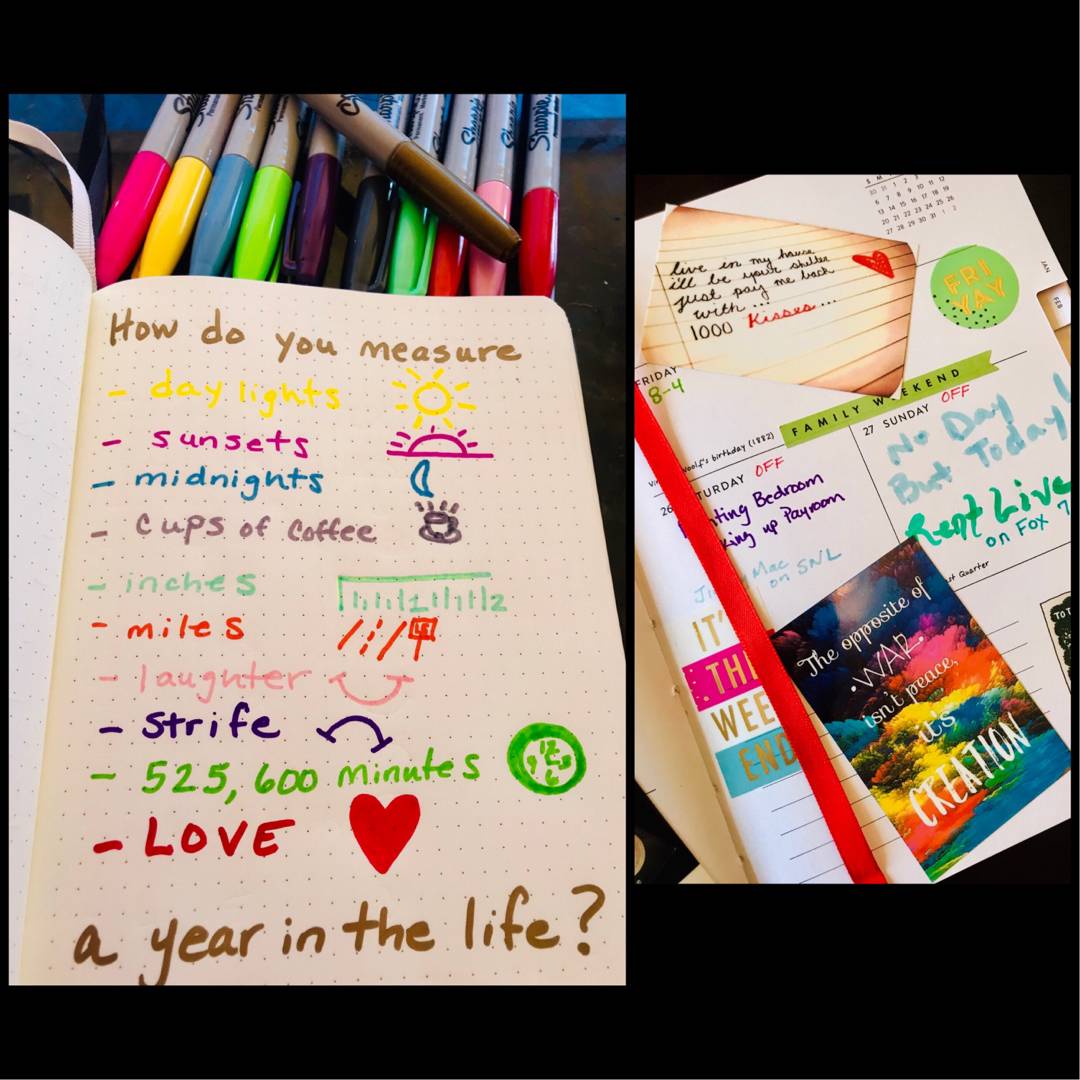 Sharpie
Sharpie
Sharpie
How do you measure
- day lights
- sunsets
- midnights
- cups of coffee
- inches
1 2
- miles
- laughter
- strife
- 525,600 minutes
12
9 3
6
- LOVE
a year in the life?
live in my house
i'll be your shelter
just pay me back
with ...
1000 Kisses...
FRI
YAY
JAN
FEB
FRIDAY
8-4
FAMILY WEEKEND
woolf's birthday (1882)
26
TURDAY OFF
nting Bedroom
king up Payroom
Mac
on SNL
27 SUNDAY OFF
No Day
But Today!
Rent Live
on Fox 7
st Quarter
IT'
THE
WEE
END
The opposite of
WAR
isn't peace,
it's
CREATION